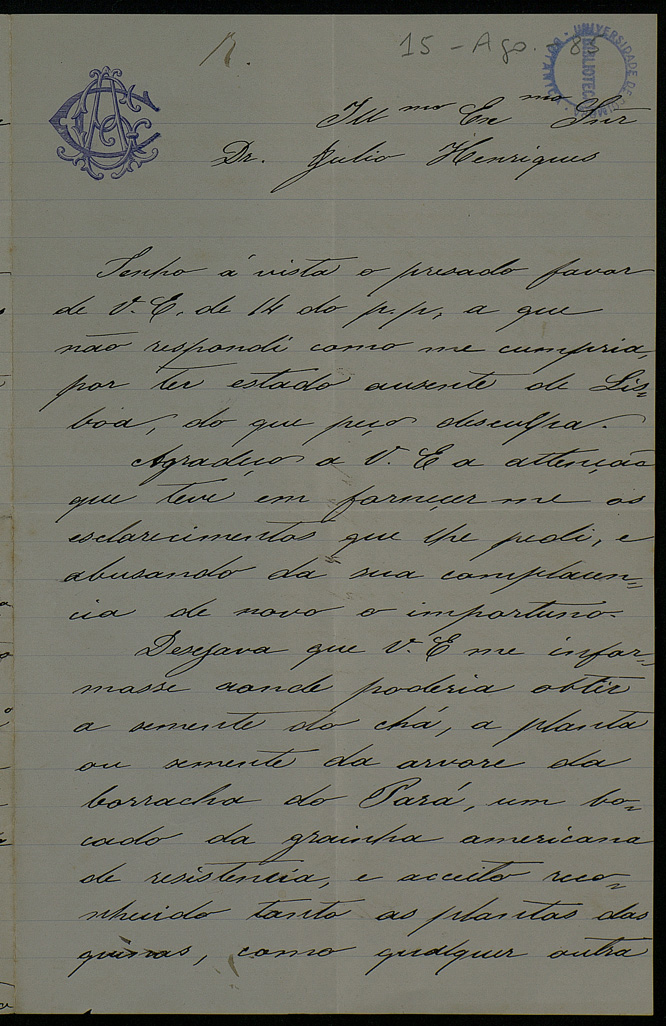 R.
15 - Ago. 85
UNIVERSIDADE DE COIMBRA
BIBLIOTECA
Illmo Exmo Snr
Dr. Julio Henriques
Tenho á vista o presado favor
de V. E. de 14 do p.p, a que
não respondi como me cumpria,
por ter estado ausente de Lis=
boa, do que peço desculpa.
Agradeço a V. E a attenção
que teve em forneçer me os
esclarecimentos que lhe pedi, e
abusando da sua complacen=
cia de novo o importuno.
Desejava que V. E me infor=
masse aonde poderia obtir
a semente do chá, a planta
ou semente da arvore da
borracha do Pará, um bo=
cado da grainha americana
de resistencia, e acceito reco=
nhecido tanto as plantas das
quinas, como qualquer outra